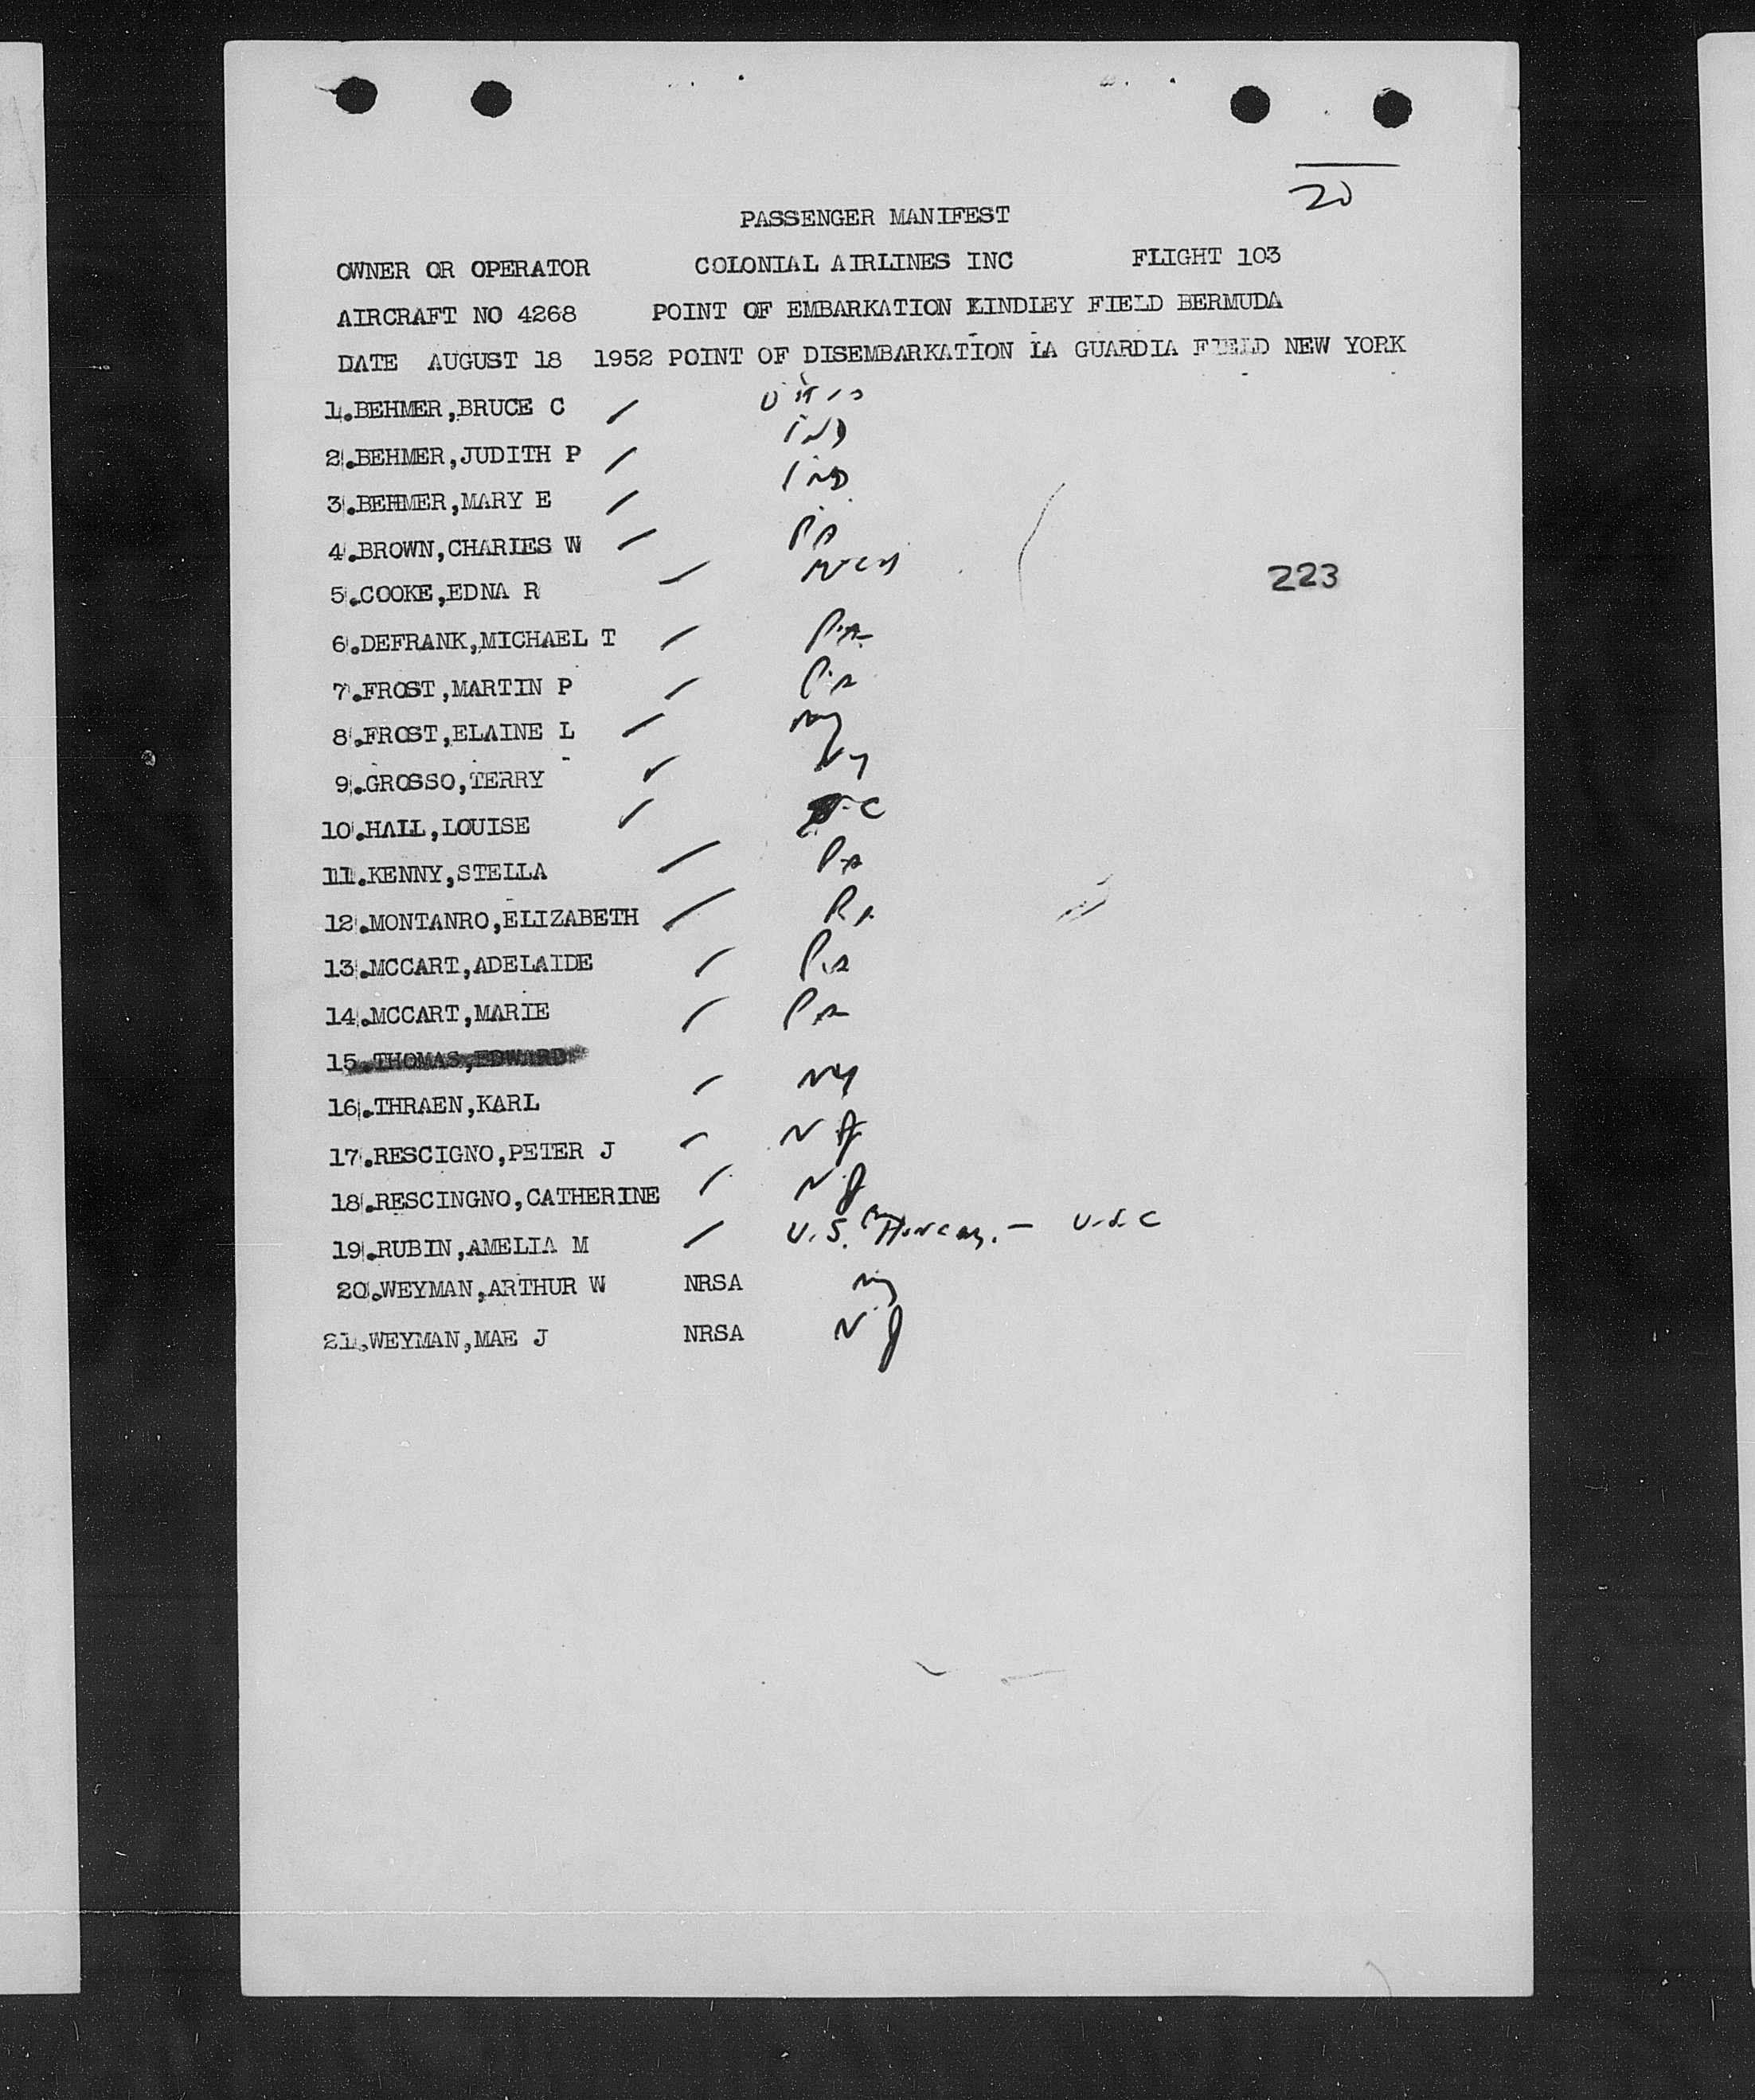 20
PASSENGER MANIFEST
OWNER OR OPERATOR COLONIAL AIRLINES INC FLIGHT 103
AIRCRAFT NO 4268 POINT OF EMBARKATION KINDLEY FIELD BERMUDA
DATE AUGUST 18 1952 POINT OF DISEMBARKATION LA GUARDIA FIELD NEW YORK
1.BEHMER,BRUCE C
IND
2.BEHMER,JUDITH P
IND
3.BEHMER,MARY E
4.BROWN,CHARLES W PA
5.COOKE,EDNA R
223
6.DEFRANK,MICHAEL T PA
7.FROST,MARTIN P PA
8.FROST,ELAINE L NY
9.GROSSO,TERRY NY
10.HALL,LOUISE
11.KENNY,STELLA PA
12.MONTANRO,ELIZABETH PA
13.MCCART,ADELAIDE PA
14.MCCART,MARIE PA
15.THOMAS,EDWARD
16.THRAEN,KARL NY
17.RESCIGNO,PETER J NJ
18.RESCINGNO,CATHERINE NJ
19.RUBIN,AMELIA M U.S.
20.WEYMAN,ARTHUR W NRSA
21.WEYMAN,MAE J NRSA NJ